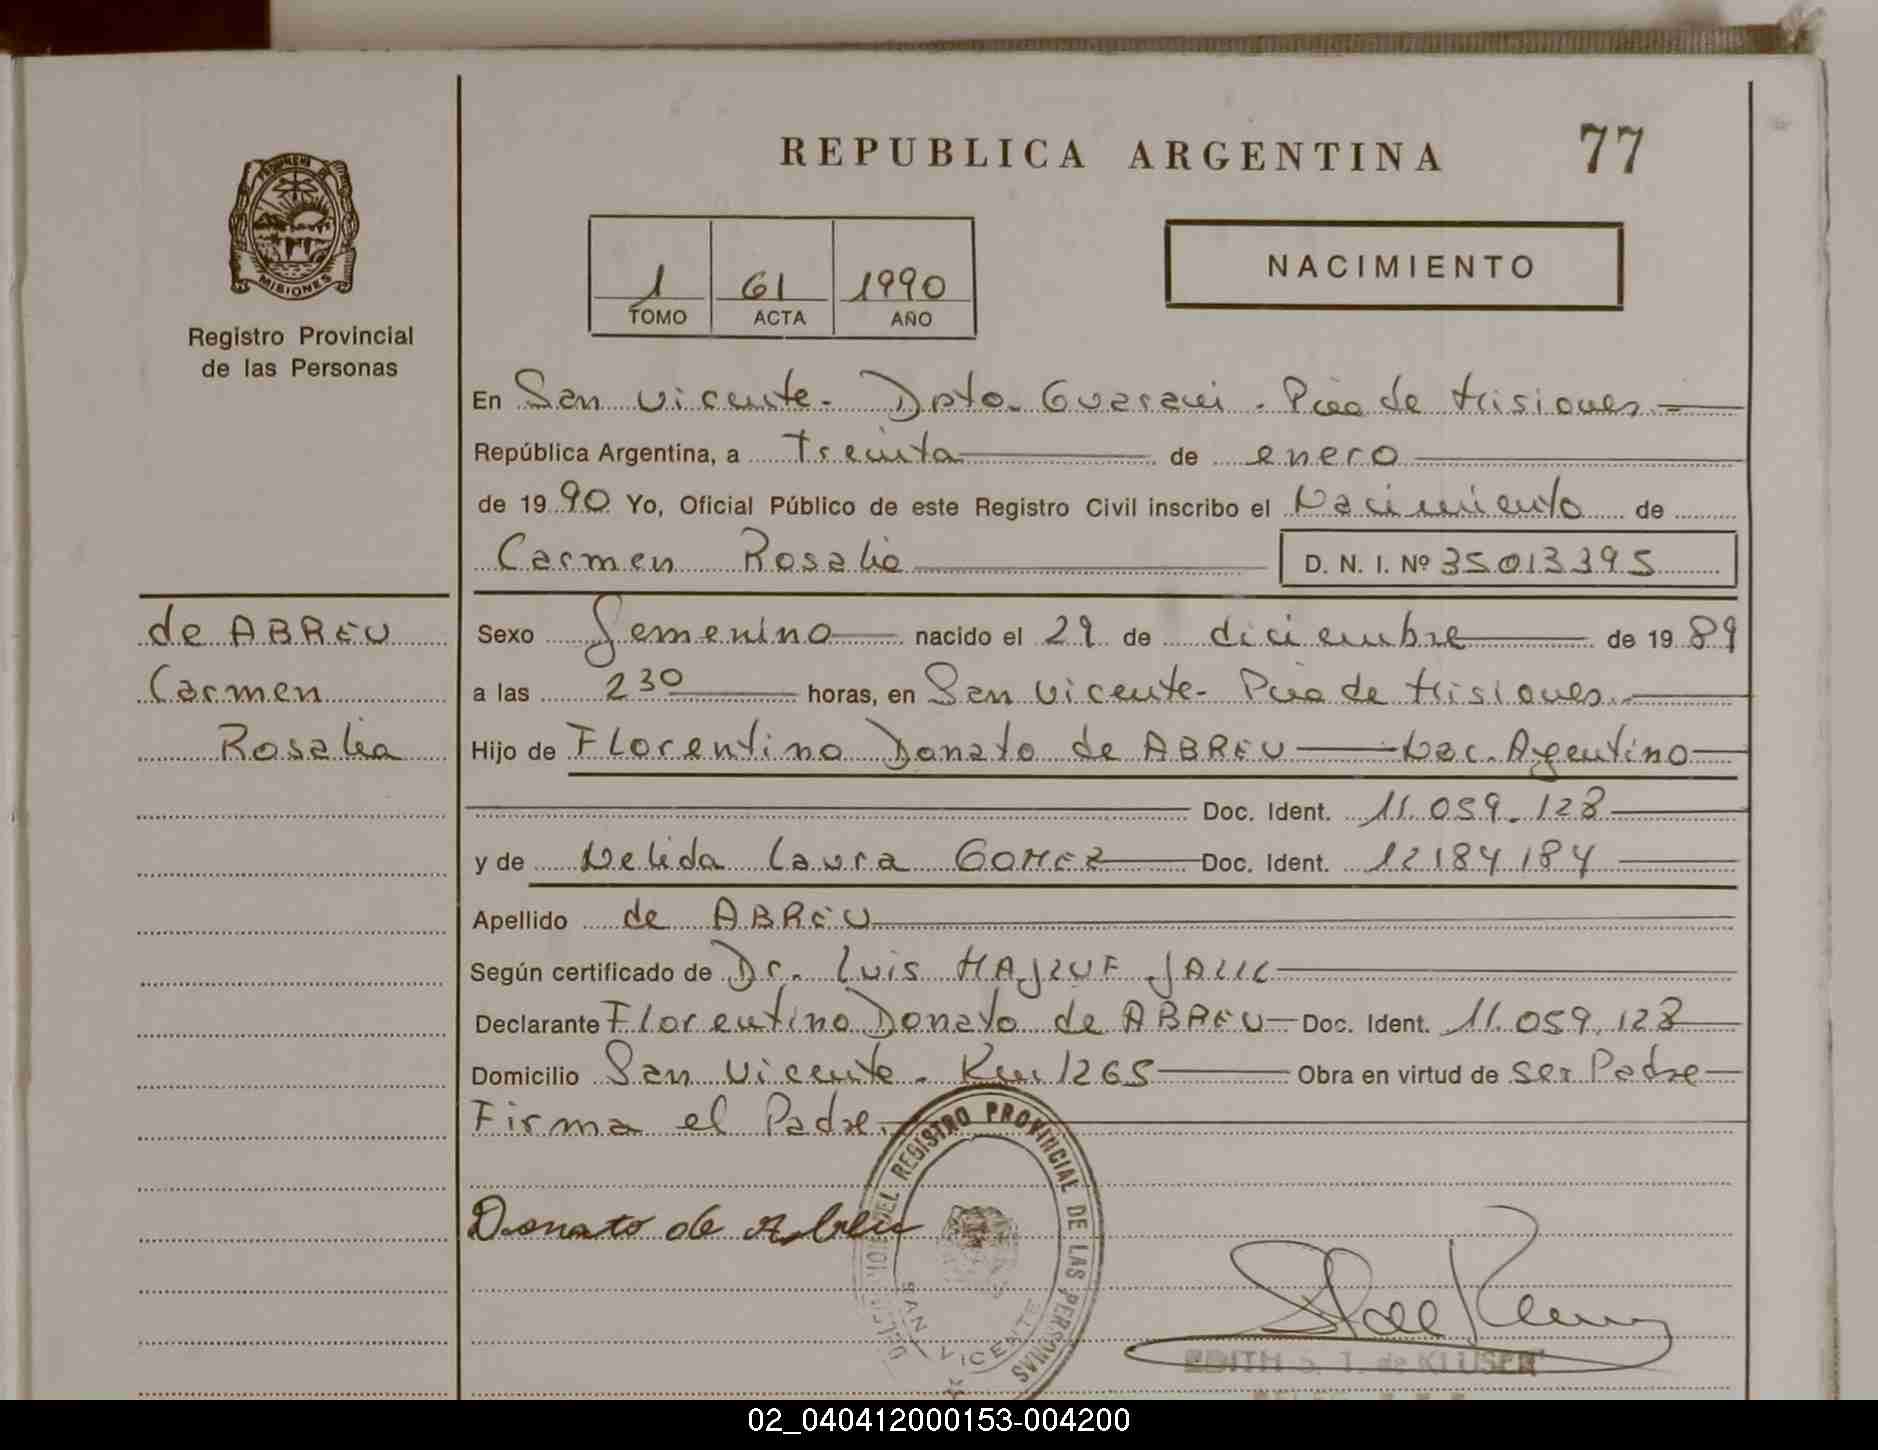 REPUBLICA ARGENTINA 77
MISIONES
Registro Provincial
de las Personas
1 61 1990
TOMO ACTA AÑO
NACIMIENTO
En San Vicente - Dpto. Guarani - Pcia de Misiones
República Argentina, a Treinta de enero
de 1990 Yo, Oficial Público de este Registro Civil inscribo el Nacimiento de
Carmen Rosalia D. N. I. Nº 35013395
de ABREU
Carmen
Rosalia
Sexo Femenino nacido el 29 de diciembre de 1989
a las 2 30 horas, en San Vicente - Pcia de Misiones
Hijo de Florentino Donato de ABREU Nac. Argentino
Doc. Ident. 11.059.128
y de Nelida Laura GOMEZ Doc. Ident. 12184184
Apellido de ABREU
Según certificado de Dr. Luis
Declarante Florentino Donato de ABREU Doc. Ident. 11.059.128
Domicilio San Vicente - Km 1265 Obra en virtud de ser Padre
Firma el Padre.
DEL REGISTRO PROVINCIAL DE LAS PERSONAS
SAN VICENTE
Donato de Abreu
EDITH de KLUSER
02_040412000153-004200